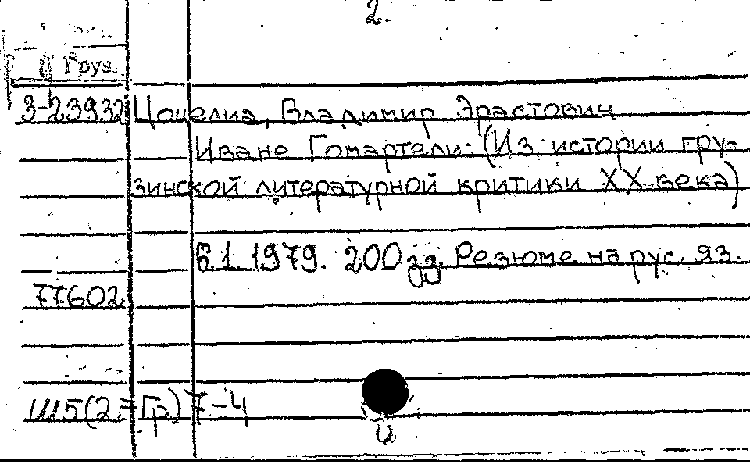 2.
Груз.
3-23932 Цоцелиа, Владимир Эрастович
Иване Гомартели. (Из истории гру-
зинской литературной критики XX века)
б.г. 1979. 200 Резюме на рус. яз.
77602
Ш5(2=Гр)7-4